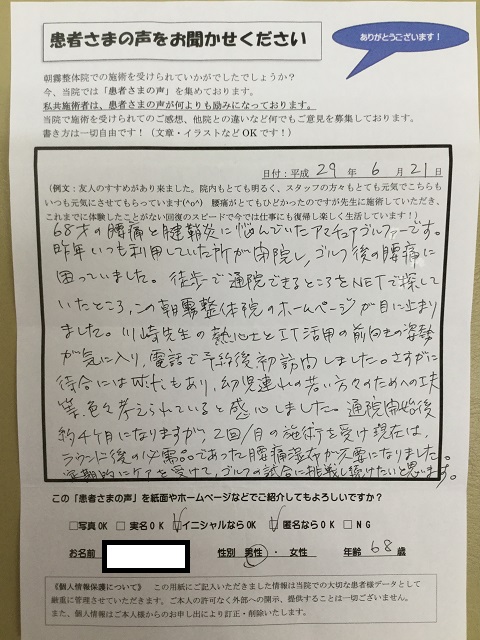 患者さまの声をお聞かせください
ありがとうございます!
朝霧整体院での施術を受けられていかがでしたでしょうか?
今、当院では「患者さまの声」を集めております。
私共施術者は、患者さまの声が何よりも励みになっております。
当院で施術を受けられてのご感想、他院との違いなど何でもご意見を募集しております。
書き方は一切自由です!(文章・イラストなどOKです!)
日付:平成 29 年 6 月 21 日
(例文:友人のすすめがあり来ました。院内もとても明るく、スタッフの方々もとても元気でこちらも
いつも元気にさせてもらっています(^o^) 腰痛がとてもひどかったのですが先生に施術していただき、
これまでに体験したことがない回復のスピードで今では仕事にも復帰し楽しく生活しています!)
68才の腰痛と腱鞘炎に悩んでいたアマチュアゴルファーです。
昨年いつも利用していた所が閉院し、ゴルフ後の腰痛に
困っていました。徒歩で通院できるところをNETで探して
いたところ、この朝霧整体院のホームページが目に止まり
ました。川崎先生の熱心さとIT活用の前向きな姿勢
が気に入り、電話で予約後初訪問しました。さすがに
待合にはiPadもあり、幼児連れの若い方々のための工夫
等、色々考えられていると感心しました。通院開始後
約4ケ月になりますが、2回/月の施術を受け現在は、
ラウンド後の必需品であった腰痛湿布が不要になりました。
定期的にケアを受けて、ゴルフの試合に挑戦し続けたいと思います。
この「患者さまの声」を紙面やホームページなどでご紹介してもよろしいですか?
□写真OK □実名OK ☑イニシャルならOK ☑匿名ならOK □NG
お名前 性別 男性 ・ 女性 年齢 68 歳
《個人情報保護について》 この用紙にご記入いただきました情報は当院での大切な患者様データとして
厳重に管理させていただきます。ご本人の許可なく外部への開示、提供することは一切ございません。
また、個人情報はご本人様からのお申し出により訂正・削除いたします。